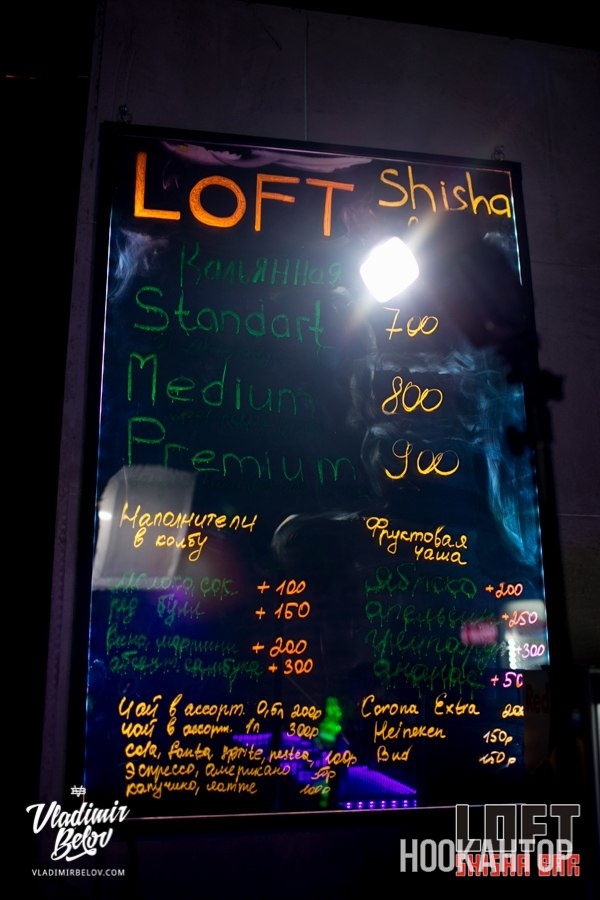 LOFT Shisha
Кальянная
Standart 700
Medium 800
Premium 900
Наполнители
в колбу
Фруктовая
чаша
молоко, сок +100
ред булл +150
вино, мартини +200
абсент, самбука +300
яблоко +200
апельсин +250
грейпфрут +300
ананас +50
Чай в ассорт. 0,5л 200р
чай в ассорт. 1л 300р
cola, fanta, sprite, nestea, 100р
Эспрессо, американо
капучино, латте 100р
Corona Extra
Heineken 150р
Bud 150р
Vladimir
Belov
VLADIMIRBELOV.COM
LOFT
SHISHA BAR
HOOKAHTOP